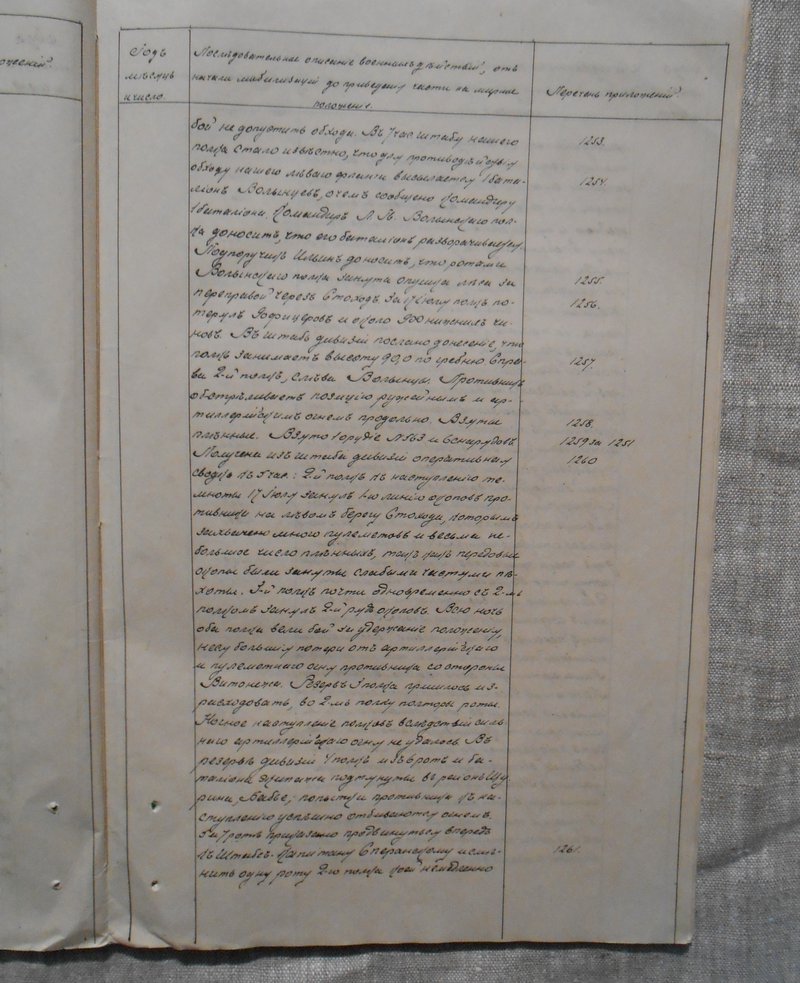 Годъ
мѣсяцъ
и число.
Послѣдовательное описаніе военныхъ дѣйствій, отъ
начала мобилизаціи до приведенія части на мирное
положеніе.
Перечень приложеній.
бой не допустить обхода. Въ 7 час штабу нашего
полка стало извѣстно, что для противодѣйствія
обходу нашего лѣваго фланга высылается 1 бата-
ліонъ Волынцевъ, о чемъ сообщено Командиру
1 баталіона. Командиръ Л. Гв. Волынскаго пол-
ка доноситъ, что его баталіонъ разворачивается.
Подпоручикъ Ильинъ доноситъ, что ротами
Волынскаго полка занята опушка лѣса за
переправой черезъ Стоходъ. За 17 Іюля полкъ по-
терялъ офицеровъ и около 900 нижнихъ чи-
новъ. Въ штабъ дивизіи послано донесеніе, что
полкъ занимаетъ высоту 90,0 по гребню. Спра-
ва 2-й полкъ, слѣва Волынцы. Противникъ
обстрѣливаетъ позицію ружейнымъ и ар-
тиллерійскимъ огнемъ продольно. Взяты
плѣнные. Взято 1 орудіе и
Получена изъ штаба дивизіи оперативная
сводка къ 5 час: 2-й полкъ къ наступленію те-
мноты 17 Іюля занялъ 1-ю линію окоповъ про-
тивника на лѣвомъ берегу Стохода, которымъ
захвачено много пулеметовъ и весьма не-
большое число плѣнныхъ, такъ какъ передовые
окопы были заняты слабыми частями пѣ-
хоты. 3-й полкъ почти одновременно съ 2-мъ
полкомъ занялъ 2-й рядъ окоповъ. Всю ночь
оба полка вели бой за удержаніе положенія,
неся большія потери отъ артиллерійскаго
и пулеметнаго огня противника со стороны
Витонежа. Резервъ 3 полка пришлось из-
расходовать, во 2-мъ полку полторы роты.
Ночное наступленіе полковъ вслѣдствіи силь-
наго артиллерійскаго огня не удалось. Въ
резервѣ дивизіи 4 полкъ изъ 8 ротъ и ба-
таліонъ подтянуты въ районъ Щу
рина, Бабье; попытки противника къ на-
ступленію успѣшно отбиваются огнемъ.
За 7 ротъ приказано продвинуться впередъ
къ Штабсъ-Капитану Сперанскому и смѣ-
нить одну роту 2-го полка кой немедленно
1253.
1254.
1255.
1256.
1257.
1258.
1259 за 1251
1260
1261.